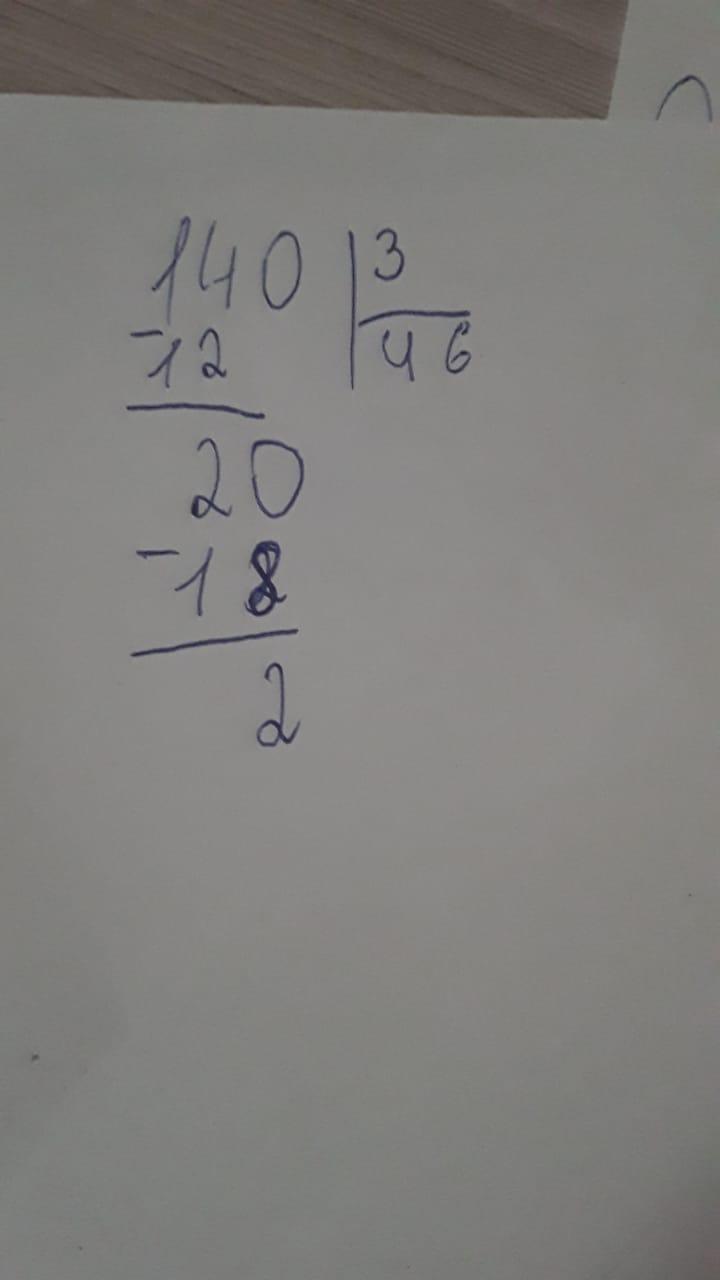 140 3
-12 46
20
-18
2